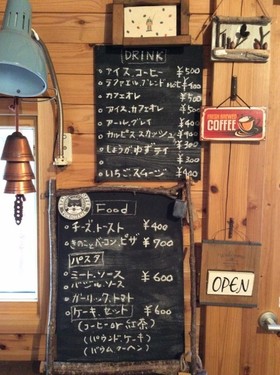 DRINK
アイス、コーヒー ¥500
カフェオレ ¥500
アイス、カフェオレ
アール、グレイ ¥400
カルピス スカッシュ ¥400
しょうがゆずティ ¥300
¥300
いちごスムージ ¥400
FRESH BREWED
COFFEE
OPEN
Food
チーズ、トースト ¥400
きのことベーコン、ピザ ¥900
パスタ
ミート・ソース ¥600
バジル・ソース
ガーリック、トマト
ケーキ、セット ¥600
(コーヒー or 紅茶)
(パウンド、ケーキ)
(バウム、クーヘン)